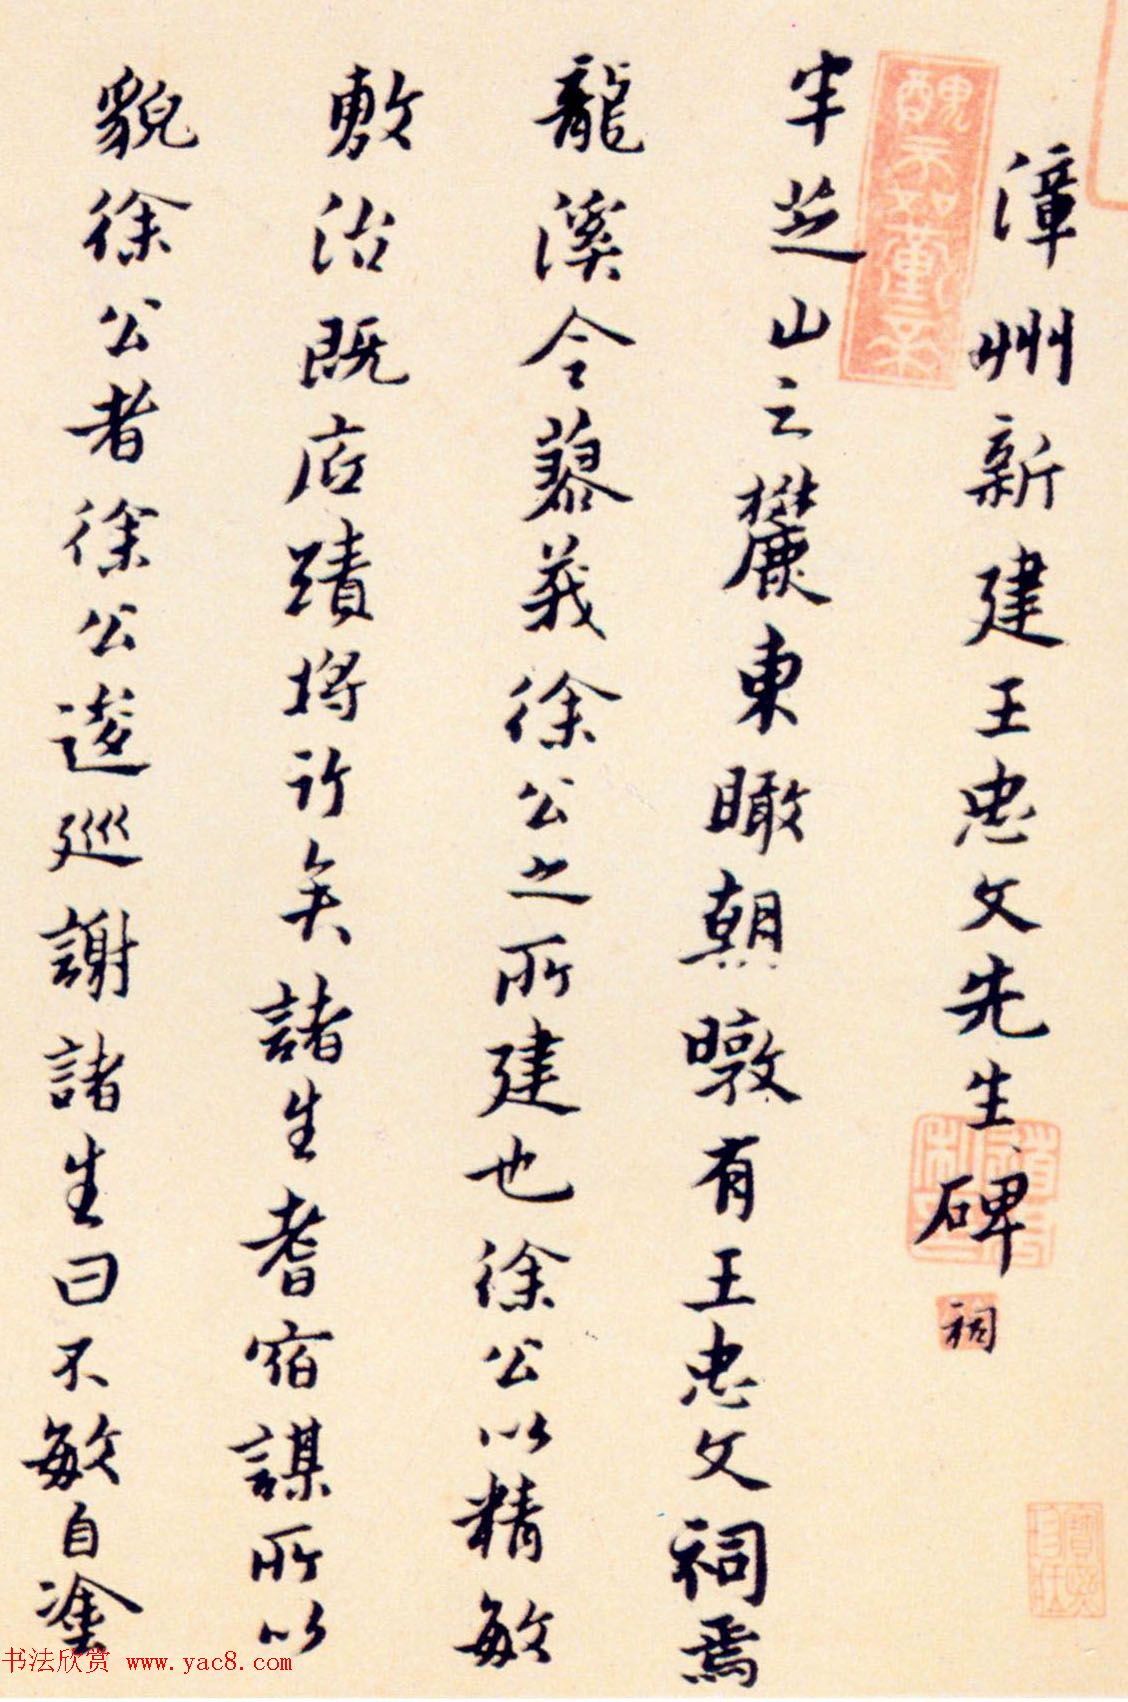 漳州新建王忠文先生碑
祠
半芝山之麓東瞰朝暾有王忠文祠焉
龍溪令慕義徐公之所建也徐公以精敏
敷治既店蹟將訖矣諸生耆宿謀所以
貌徐公者徐公逡巡謝諸生曰不敏自塗
书法欣赏 www.yac8.com